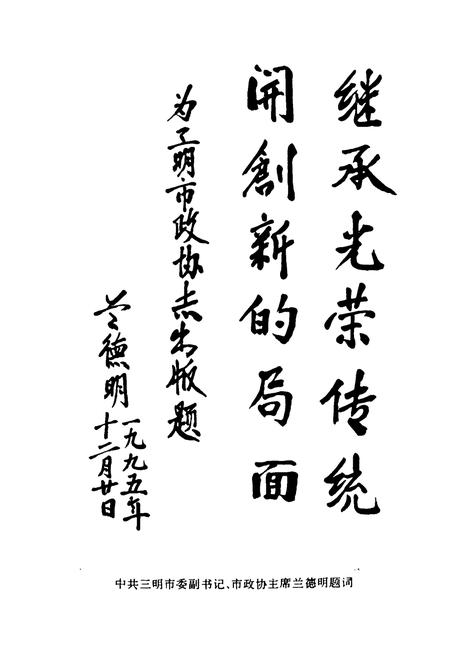 继承光荣传统
開創新的局面
为三明市政协志出版题
兰德明
一九九五年
十二月廿日
中共三明市委副书记、市政协主席兰德明题词